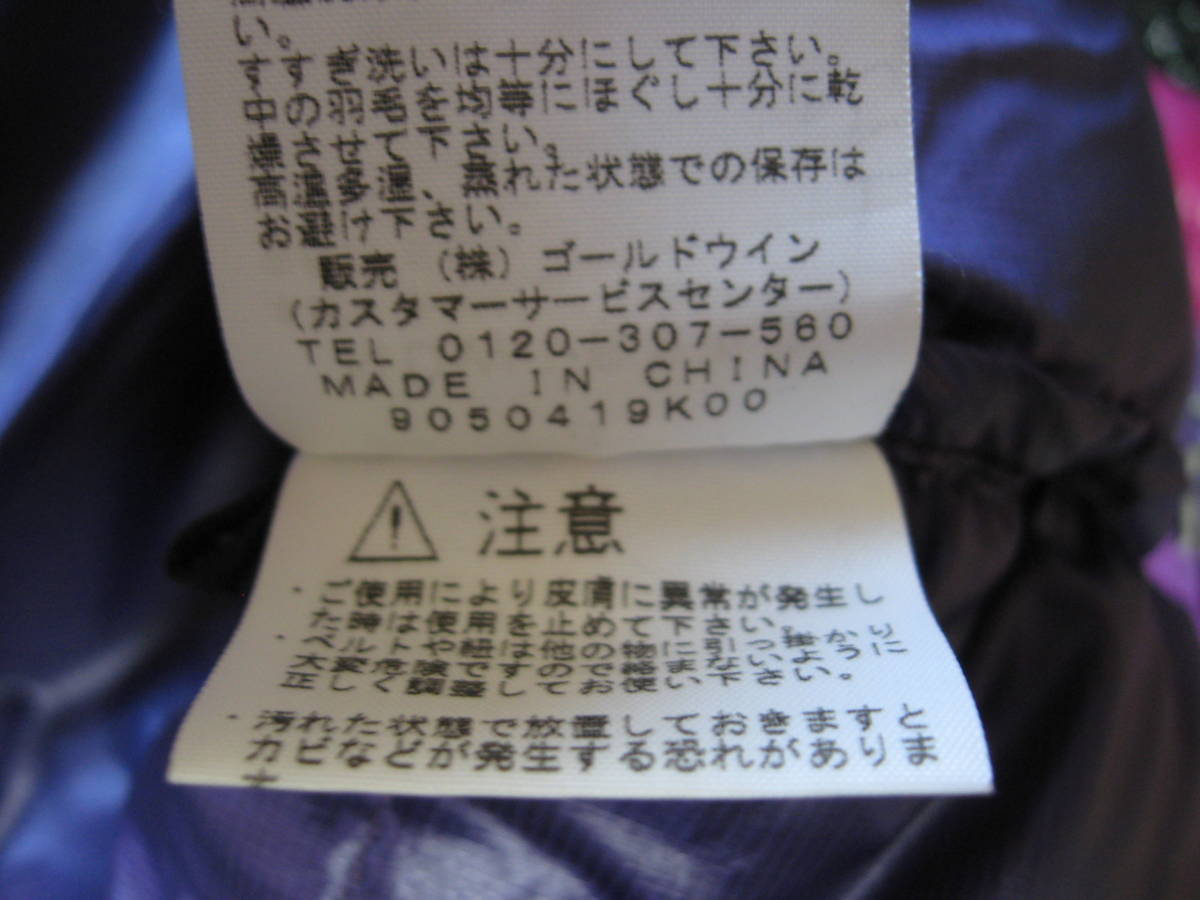 い。
すすぎ洗いは十分にして下さい。
中の羽毛を均等にほぐし十分に乾
燥させて下さい。
高温多湿、濡れた状態での保存は
お避け下さい。
販売 (株) ゴールドウイン
(カスタマーサービスセンター)
TEL 0120-307-560
MADE IN CHINA
9050419K00
注意
・ご使用により皮膚に異常が発生し
た時は使用を止めて下さい。
・ベルトや紐は他の物に引っ掛かり
大変危険ですので絡まないように
正しく調整してお使い下さい。
・汚れた状態で放置しておきますと
カビなどが発生する恐れがありま